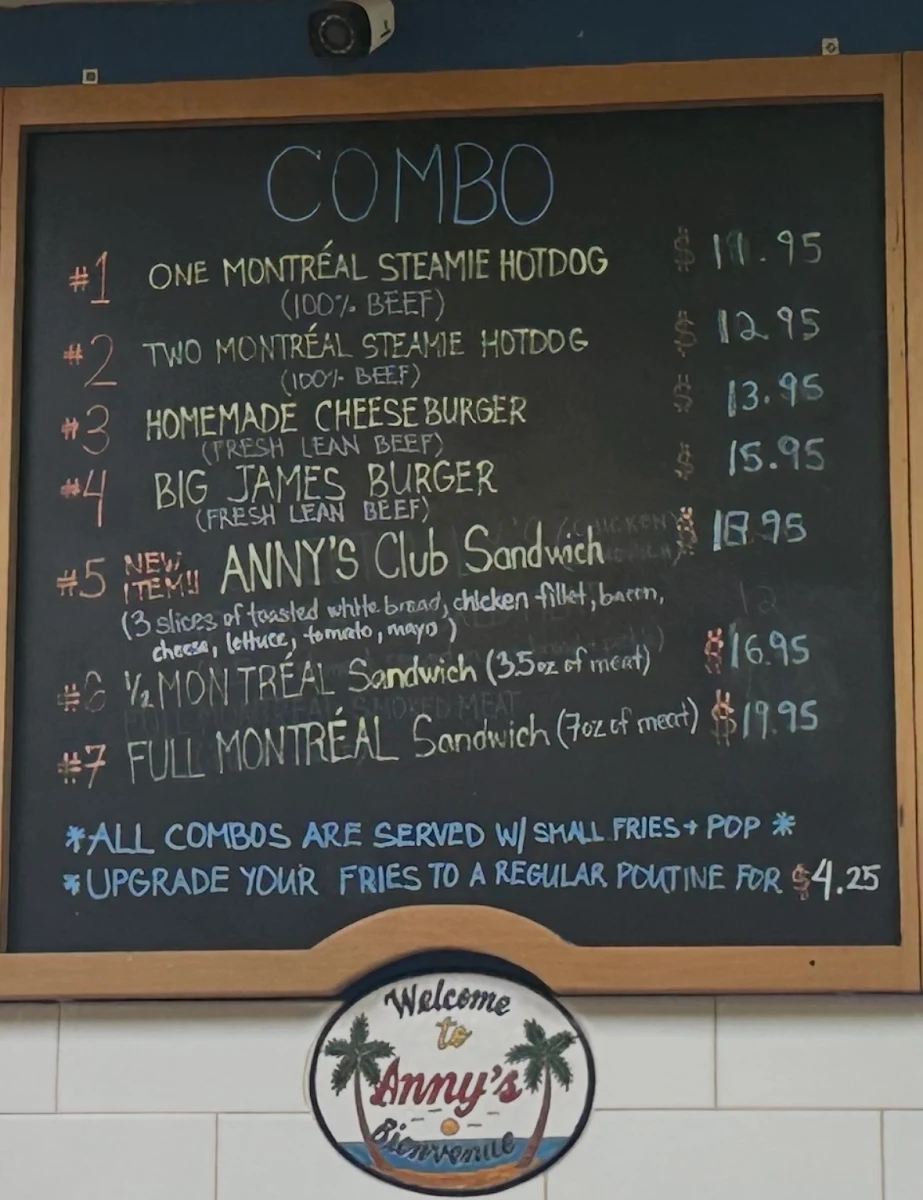 COMBO
#1 ONE MONTRÉAL STEAMIE HOTDOG $ 11.95
(100% BEEF)
#2 TWO MONTRÉAL STEAMIE HOTDOG $ 12.95
(100% BEEF)
#3 HOMEMADE CHEESEBURGER $ 13.95
(FRESH LEAN BEEF)
#4 BIG JAMES BURGER $ 15.95
(FRESH LEAN BEEF)
#5 NEW ITEM!! ANNY'S Club Sandwich $ 18.95
(3 slices of toasted white bread, chicken fillet, bacon,
cheese, lettuce, tomato, mayo)
#6 1/2 MONTRÉAL Sandwich (3.5oz of meat) $16.95
#7 FULL MONTRÉAL Sandwich (7oz of meat) $19.95
*ALL COMBOS ARE SERVED W/ SMALL FRIES + POP *
*UPGRADE YOUR FRIES TO A REGULAR POUTINE FOR $4.25
Welcome
to
Anny's
Bienvenue